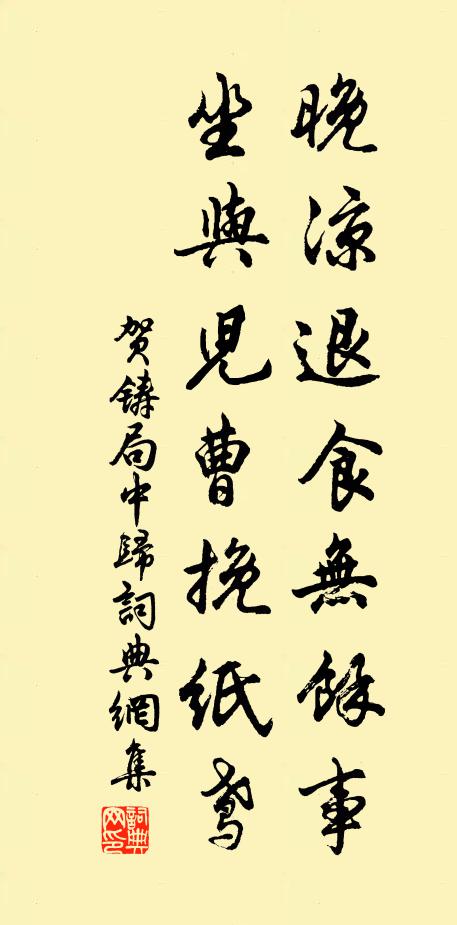 晚凉退食無餘事
坐與児曹挽紙鳶
贺鑄局中歸詞典網集
詞典網印